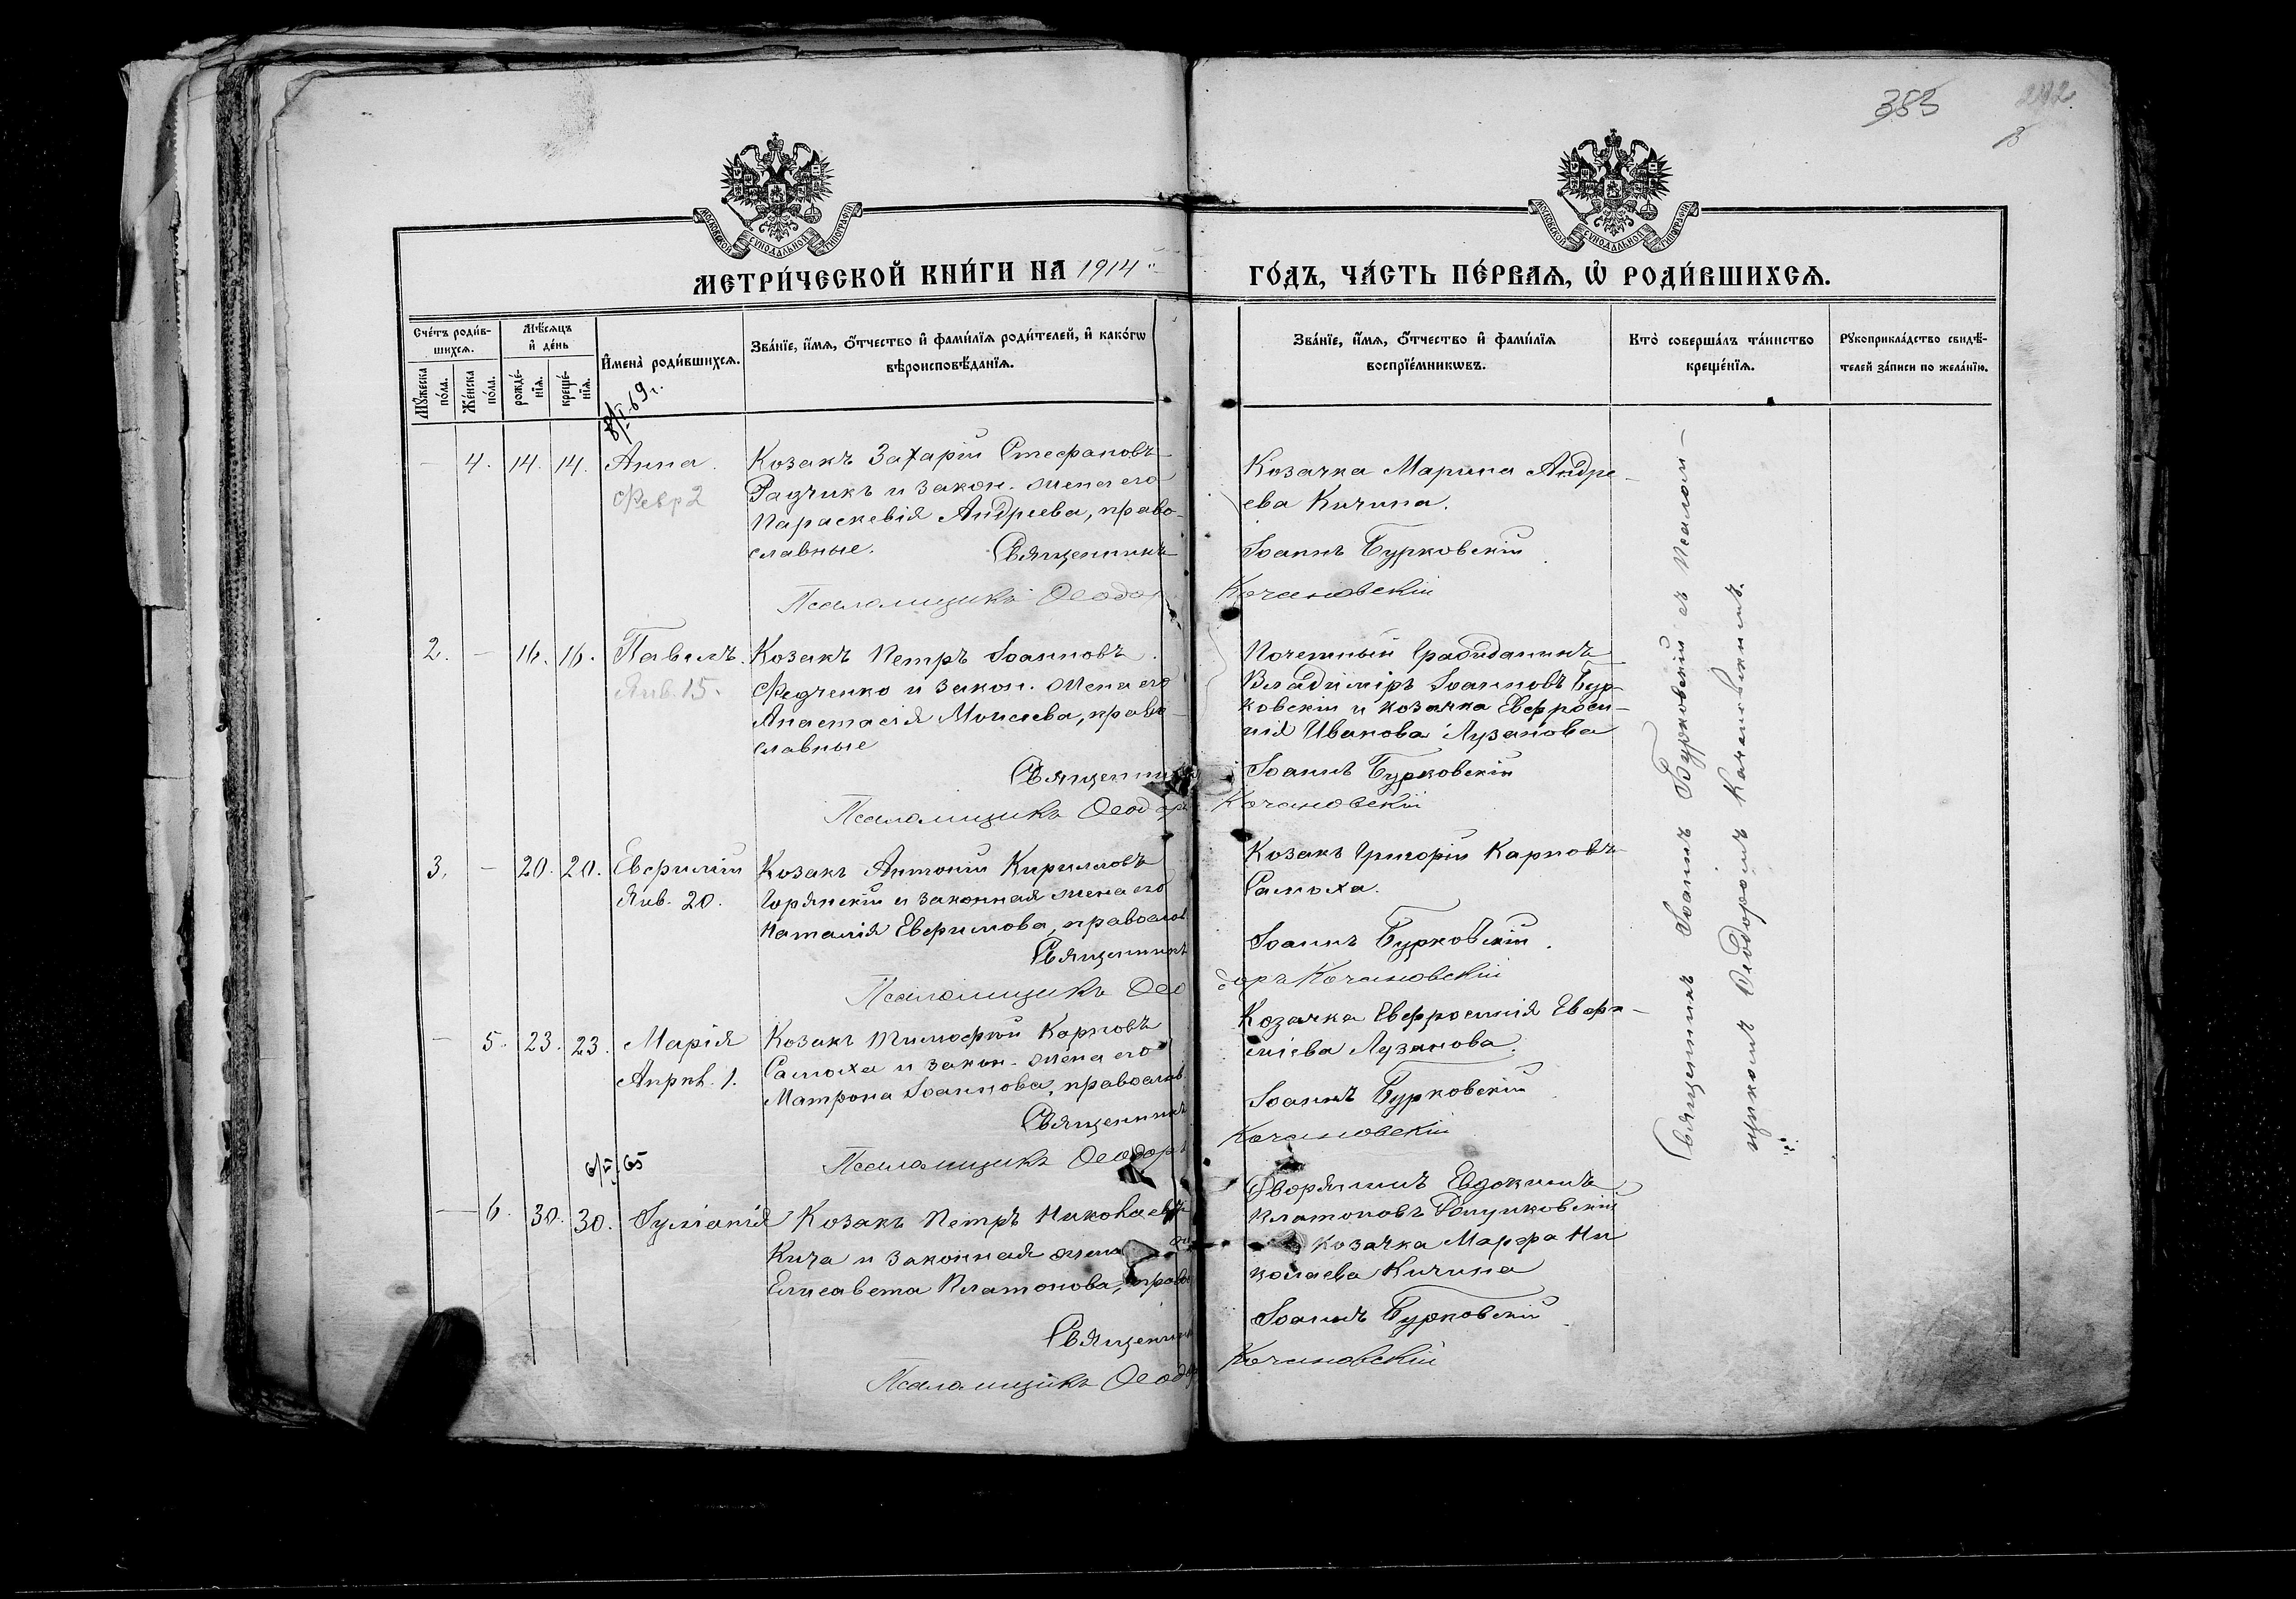 383
МОСКОВСКОЙ СѴНОДАЛЬНОЙ ТИПОГРАФІИ
МОСКОВСКОЙ СѴНОДАЛЬНОЙ ТИПОГРАФІИ
МЕТРИ́ЧЕСКОЙ КНИ́ГИ НА 1914
ГО́ДЪ, ЧА́СТЬ ПЕ́РВАѦ, Ѡ҆ РОДИ́ВШИХСѦ.
Сче́тъ роди́в-
шихсѧ.
Мꙋ́жеска по́ла.
Же́нска по́ла.
Мѣ́сѧцъ
и҆ де́нь
рожде́-
нїѧ.
креще́-
нїѧ.
И҆мена̀ роди́вшихсѧ.
Зва́нїе, и҆́мѧ, ѻ҆́тчество и҆ фами́лїѧ роди́телей, и҆ како́гѡ
вѣроисповѣ́данїѧ.
Зва́нїе, и҆́мѧ, ѻ҆́тчество и҆ фами́лїѧ
воспрїе́мникѡвъ.
Кто̀ соверша́лъ та́инство
креще́нїѧ.
Рꙋкоприкла́дство свидѣ́-
телей за́писи по жела́нїю.
— 4. 14. 14. Анна.
Февр 2
Козакъ Захарій Стефановъ
и закон. жена его
Параскевія Андреева, право-
славные.
Священникъ
Псаломщикъ Ѳеодор
Козачка Марина Андре-
ева Кичина.
Іоаннъ Бурковскій
Кочановскій
2. — 16. 16. Павелъ.
Янв. 15.
Козакъ Петръ Іоанновъ
Федченко и закон. жена его
Анастасія Моисеева, право-
славные
Священникъ
Псаломщикъ Ѳеодоръ
Почетный Гражданинъ
Владиміръ Іоанновъ Бур-
ковскій и козачка Евфроси-
нія Иванова Лузанова
Іоаннъ Бурковскій
Кочановскій
3. — 20. 20. Евфимій
Янв. 20.
Козакъ Антоній Кирилловъ
Горянскій и законная жена его
Наталія Евфимова, правослов
Священникъ
Псаломщикъ Ѳео
Козакъ Григорій Карповъ
Самоха.
Іоаннъ Бурковскій.
доръ Кочановскій
— 5. 23. 23. Марія
Апрѣл. 1.
Козакъ Тимофей Карповъ
Самоха и закон. жена его
Матрона Іоаннова, православ.
Священникъ
Псаломщикъ Ѳеодоръ
Козачка Евфросинія Евфи-
міева Лузанова.
Іоаннъ Бурковскій
Кочановскій
— 6. 30. 30. Іуліанія
Козакъ Петръ Николаевъ
Кича и законная жена
Елисавета Платонова, право
Священникъ
Псаломщикъ Ѳеодор
Дворянинъ Евдокимъ
Платоновъ
козачка Марфа Ни
колаева Кичина
Іоаннъ Бурковскій
Кочановскій
Священникъ Іоаннъ Бурковскій съ Псалом-
щикомъ Ѳеодоромъ Кочановскимъ.